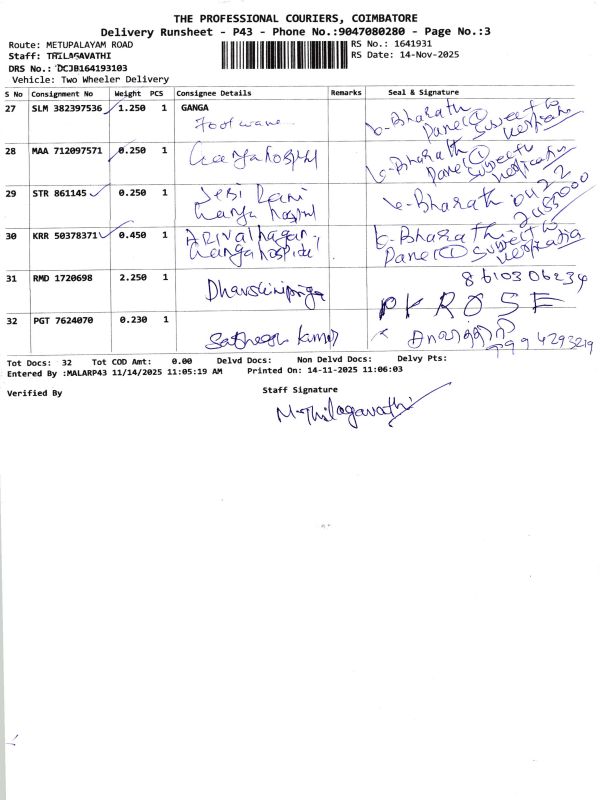 THE PROFESSIONAL COURIERS, COIMBATORE
Delivery Runsheet - P43 - Phone No.:9047080280 - Page No.:3
Route: METUPALAYAM ROAD
RS No.: 1641931
Staff: THILAGAVATHI
RS Date: 14-Nov-2025
DRS No.: DCJB164193103
Vehicle: Two Wheeler Delivery
S No Consignment No Weight PCS Consignee Details Remarks Seal & Signature
27 SLM 382397536 1.250 1 GANGA
Footware
b-Bharath
Panel@ Subject to
Verification
28 MAA 712097571 0.250 1 Ganga hospital
b-Bharath
Panel@ Subject to
Verification
29 STR 861145 0.250 1 Jebi Rani
Ganga hospital
b-Bharath 0422
2485000
30 KRR 50378371 0.450 1 Arivalhagan
Ganga hospital
b-Bharathi
Panel@ Subject to
Verification
31 RMD 1720698 2.250 1 Dharshinipriya
8610306234
PKROSE
32 PGT 7624070 0.230 1 Sathees Kumar
9994293219
Tot Docs: 32 Tot COD Amt: 0.00 Delvd Docs: Non Delvd Docs: Delvy Pts:
Entered By :MALARP43 11/14/2025 11:05:19 AM Printed On: 14-11-2025 11:06:03
Verified By
Staff Signature
M.Thilagavathi